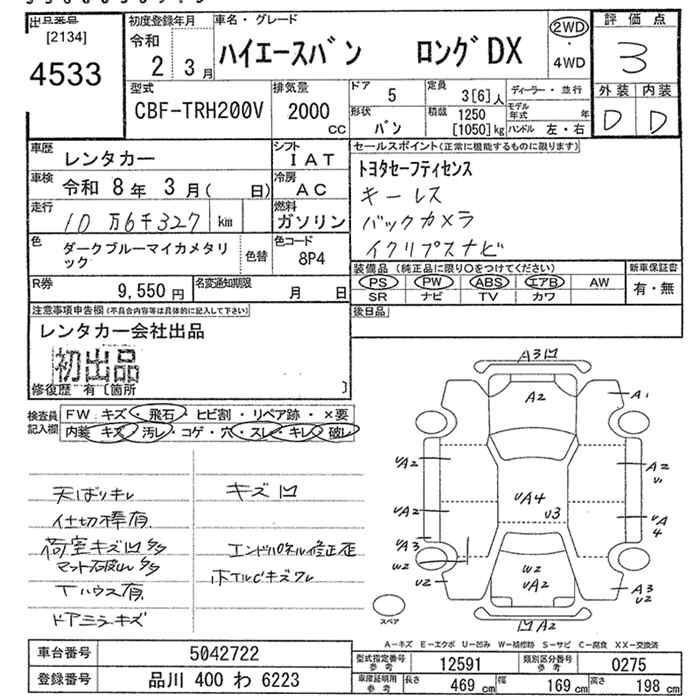 出品番号
[2134]
4533
初度登録年月
令和
2 3月
車名・グレード
ハイエースバン ロングDX
2WD
・
4WD
評価点
3
外装 内装
D D
型式
CBF-TRH200V
排気量
2000
cc
ドア
5
定員
3[6]人
ディーラー・並行
形状
バン
積載
1250
[1050]kg
モデル
年式 年
ハンドル 左・右
車歴
レンタカー
シフト
IAT
車検
令和 8年 3月( 日)
冷房
AC
走行
10万6千327 km
燃料
ガソリン
色
ダークブルーマイカメタリ
ック
色替
色コード
8P4
R券
9,550円
名変通知期限
月 日
セールスポイント(正常に機能するものに限ります)
トヨタセーフティセンス
キーレス
バックカメラ
イクリプスナビ
装備品 (純正品に限り○をつけてください)
PS PW ABS エアB AW
SR ナビ TV カワ
新車保証書
有・無
後日品
注意事項申告欄(不具合内容等は具体的に記入して下さい)
レンタカー会社出品
初出品
修復歴 有〔箇所 〕
検査員
記入欄
FW キズ・飛石・ヒビ割・リペア跡・×要
内装 キズ・汚レ・コゲ・穴・スレ・キレ・破レ
天ばりキレ
仕切棒有
荷室キズ凹
Tハウス有
ドアミラキズ
キズ凹
エンドパネル修正歪
ホイルCキズワレ
A3凹
A2
A1
UA2
A2
U1
UA4
U3
UA2
UA
4
UA3
W2
U2
W2
UA2
A3
U2
凹A2
スペア
A-キズ E-エクボ U-凹み W-補修跡 S-サビ C-腐食 XX-交換済
車台番号
5042722
登録番号
品川 400 わ 6223
型式指定番号
参考
12591
類別区分番号
参考
0275
車庫証明用
参考
長さ
469 cm
幅
169 cm
高さ
198 cm